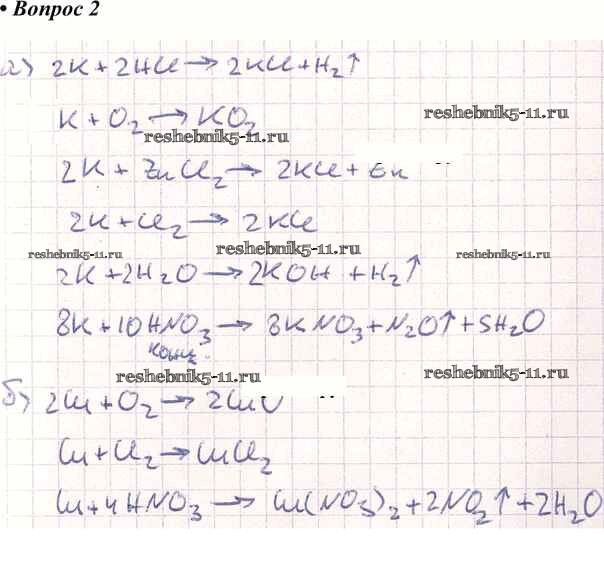 • Вопрос 2
а) 2K + 2HCl → 2KCl + H₂↑
K + O₂ → KO₂
reshebnik5-11.ru
reshebnik5-11.ru
2K + ZnCl₂ → 2KCl + Zn
2K + Cl₂ → 2KCl
reshebnik5-11.ru
reshebnik5-11.ru
reshebnik5-11.ru
2K + 2H₂O → 2KOH + H₂↑
8K + 10HNO₃ → 8KNO₃ + N₂O↑ + 5H₂O
конц.
reshebnik5-11.ru
reshebnik5-11.ru
б) 2Cu + O₂ → 2CuO
Cu + Cl₂ → CuCl₂
Cu + 4HNO₃ → Cu(NO₃)₂ + 2NO₂↑ + 2H₂O